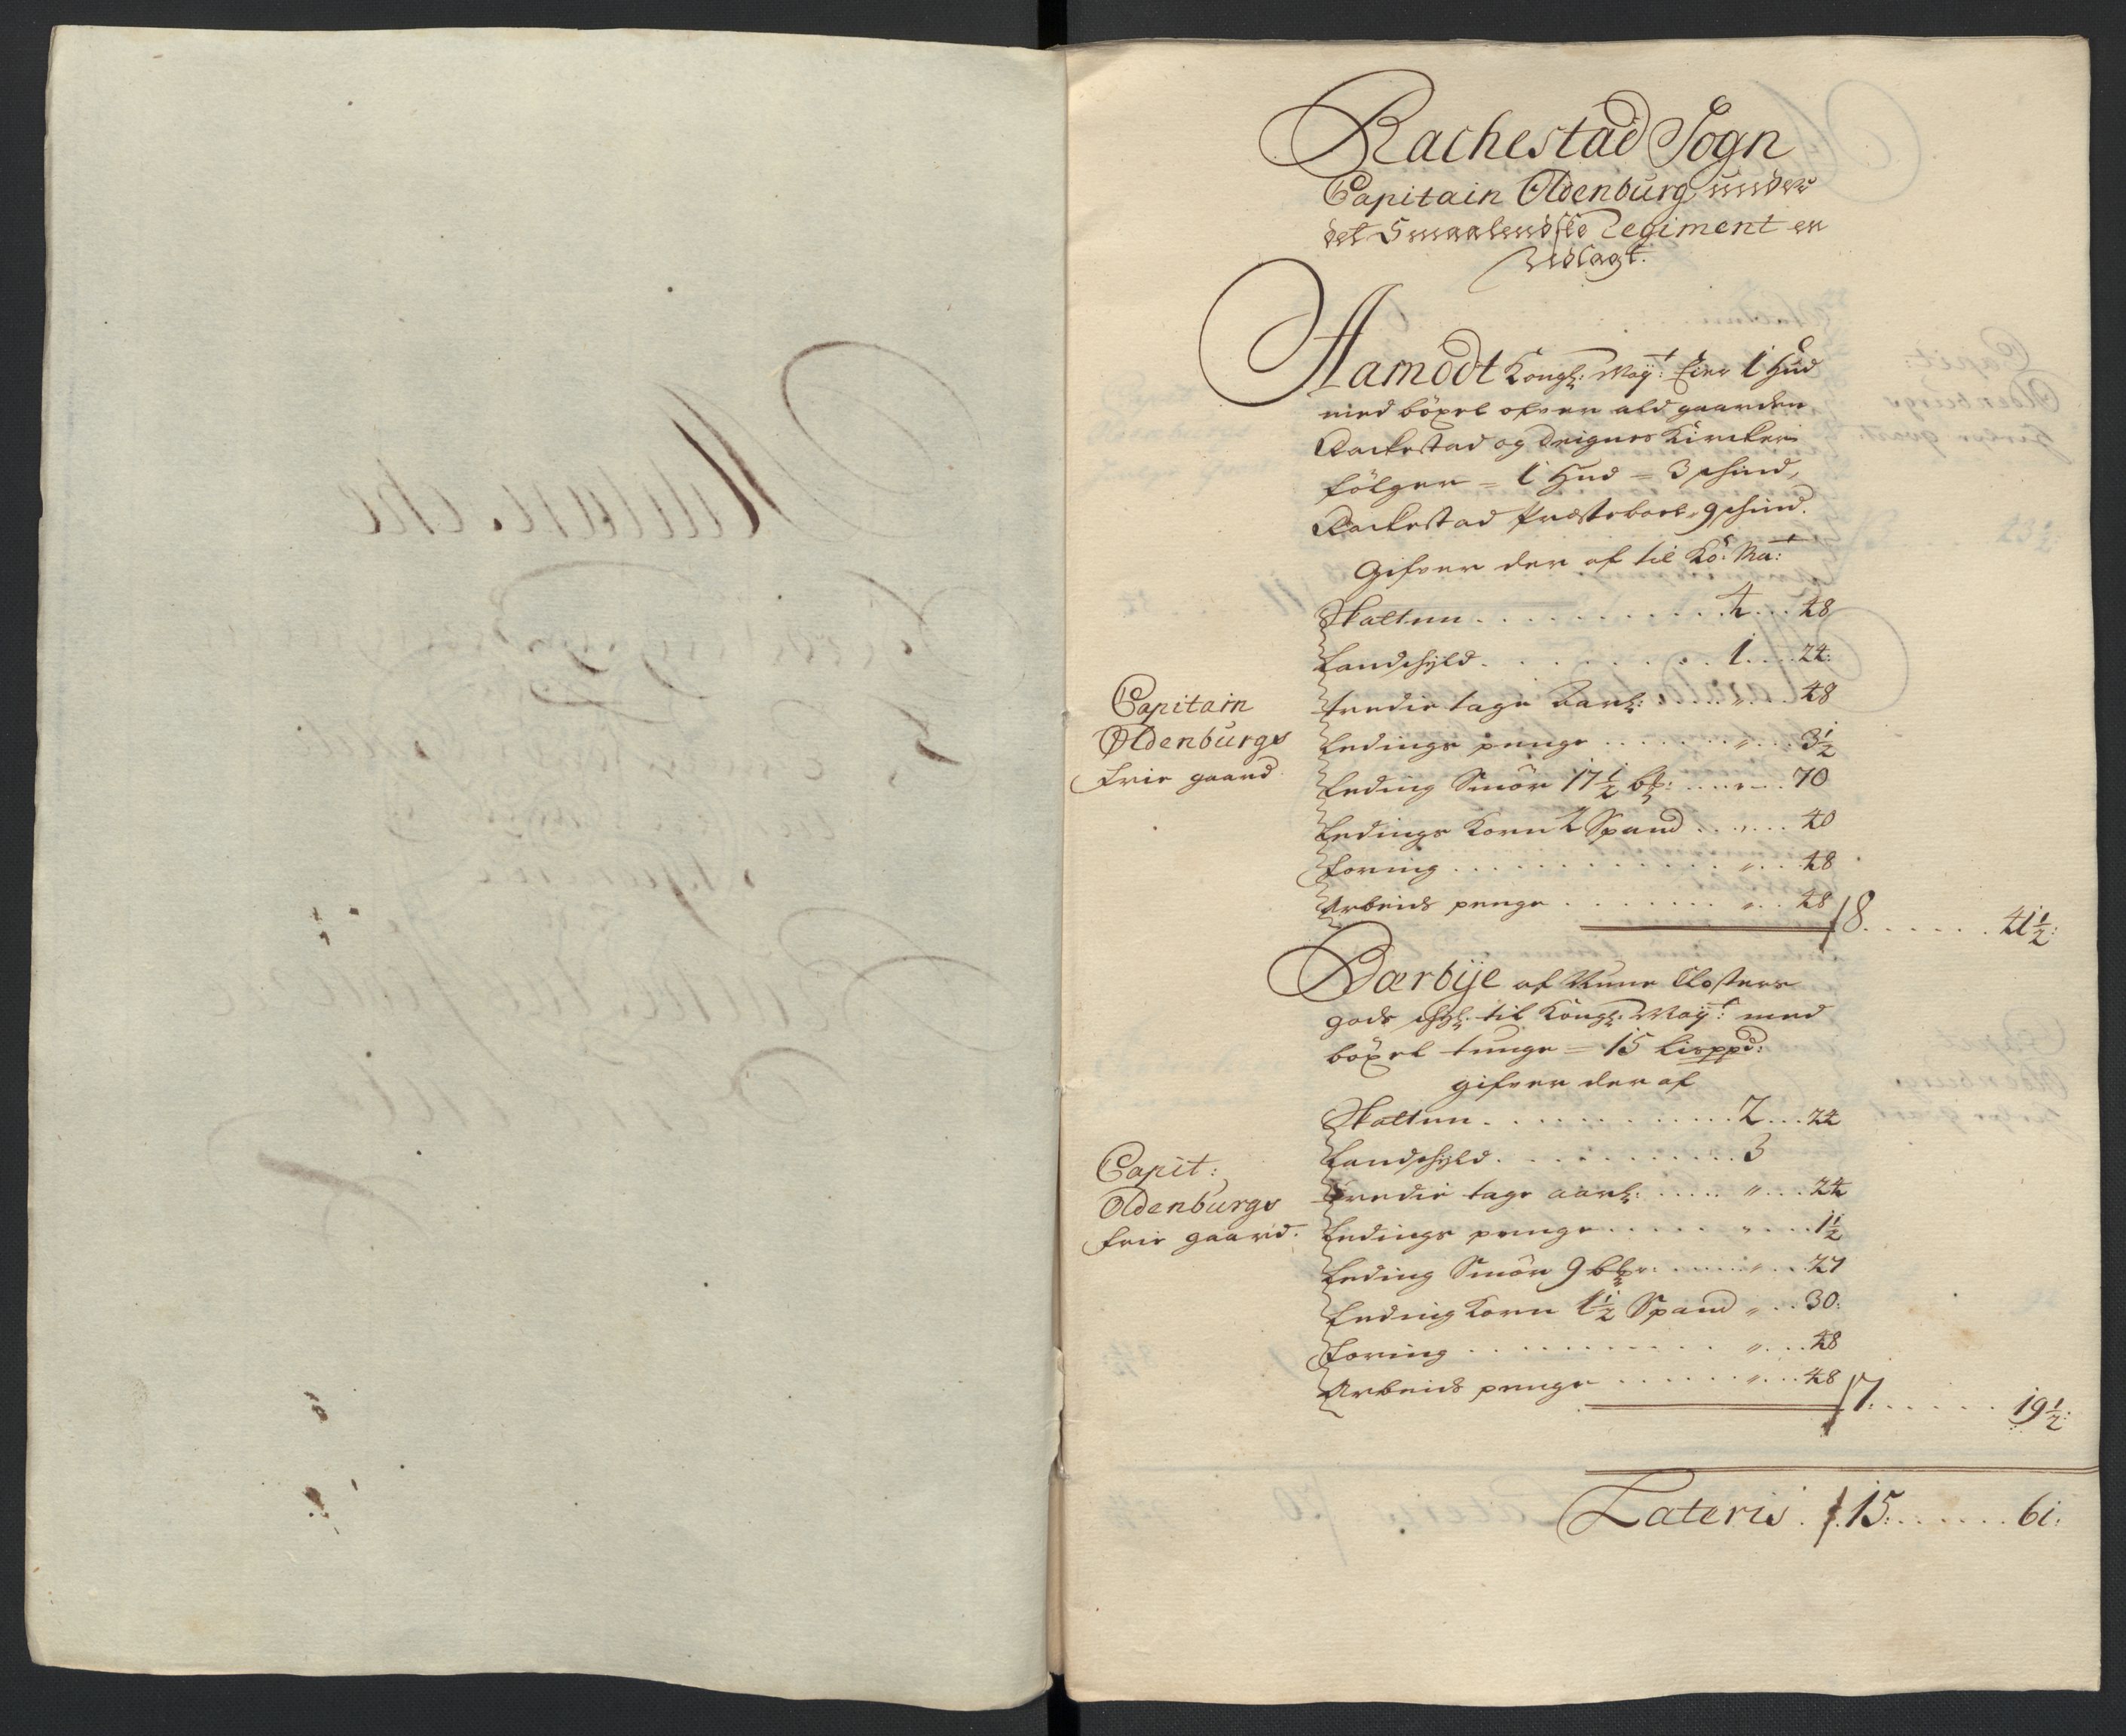 Rachestad Sogn
Capitain Oldenburg under
det Smaalendske Regiment er
Udlagt.
Aamodt Kongl: May:t Eier 1 Hud
med böxel ofver ald gaarden
Rackestad og Deignes Kircken
følger = 1 Hud = 3 schind,
Rackestad Præsteboel 9 schind.
Gifver der af til Kö: Ma:t
Skatten . . . 4 . . . 48
Landschyld . . . 1 . . . 24:
tredie tage Aarl: . . . „ . . . 48
Ledings penge . . . „ . . . 3½
Leding Smör 17½ bp: . . . „ . . . 70
Ledings Korn 2 Spand . . . „ . . . 40
Foring . . . „ . . . 48
Arbeids penge . . . „ . . . 48
8 . . . 41½:
Capitain
Oldenburgs
frie gaard
Bærbÿe af Nunne Closters
gods schyl: til Kongl: May:t med
böxel tunge = 15 Lisppd:
gifver der af
Skatten . . . 2 . . . 24
Landschyld . . . 3
Tredie tage aarl: . . . „ . . . 24
Ledings penge . . . „ . . . 1½
Leding Smör 9 bpr: . . . „ . . . 27
Leding Korn 1½ Spand „ . . 30:
Foring . . . „ . . . 48
Arbeids penge . . . „ . . . 48
7 . . . 19½:
Capit:
Oldenburgs
frie gaard:
Lateris . 15: . . . 61: